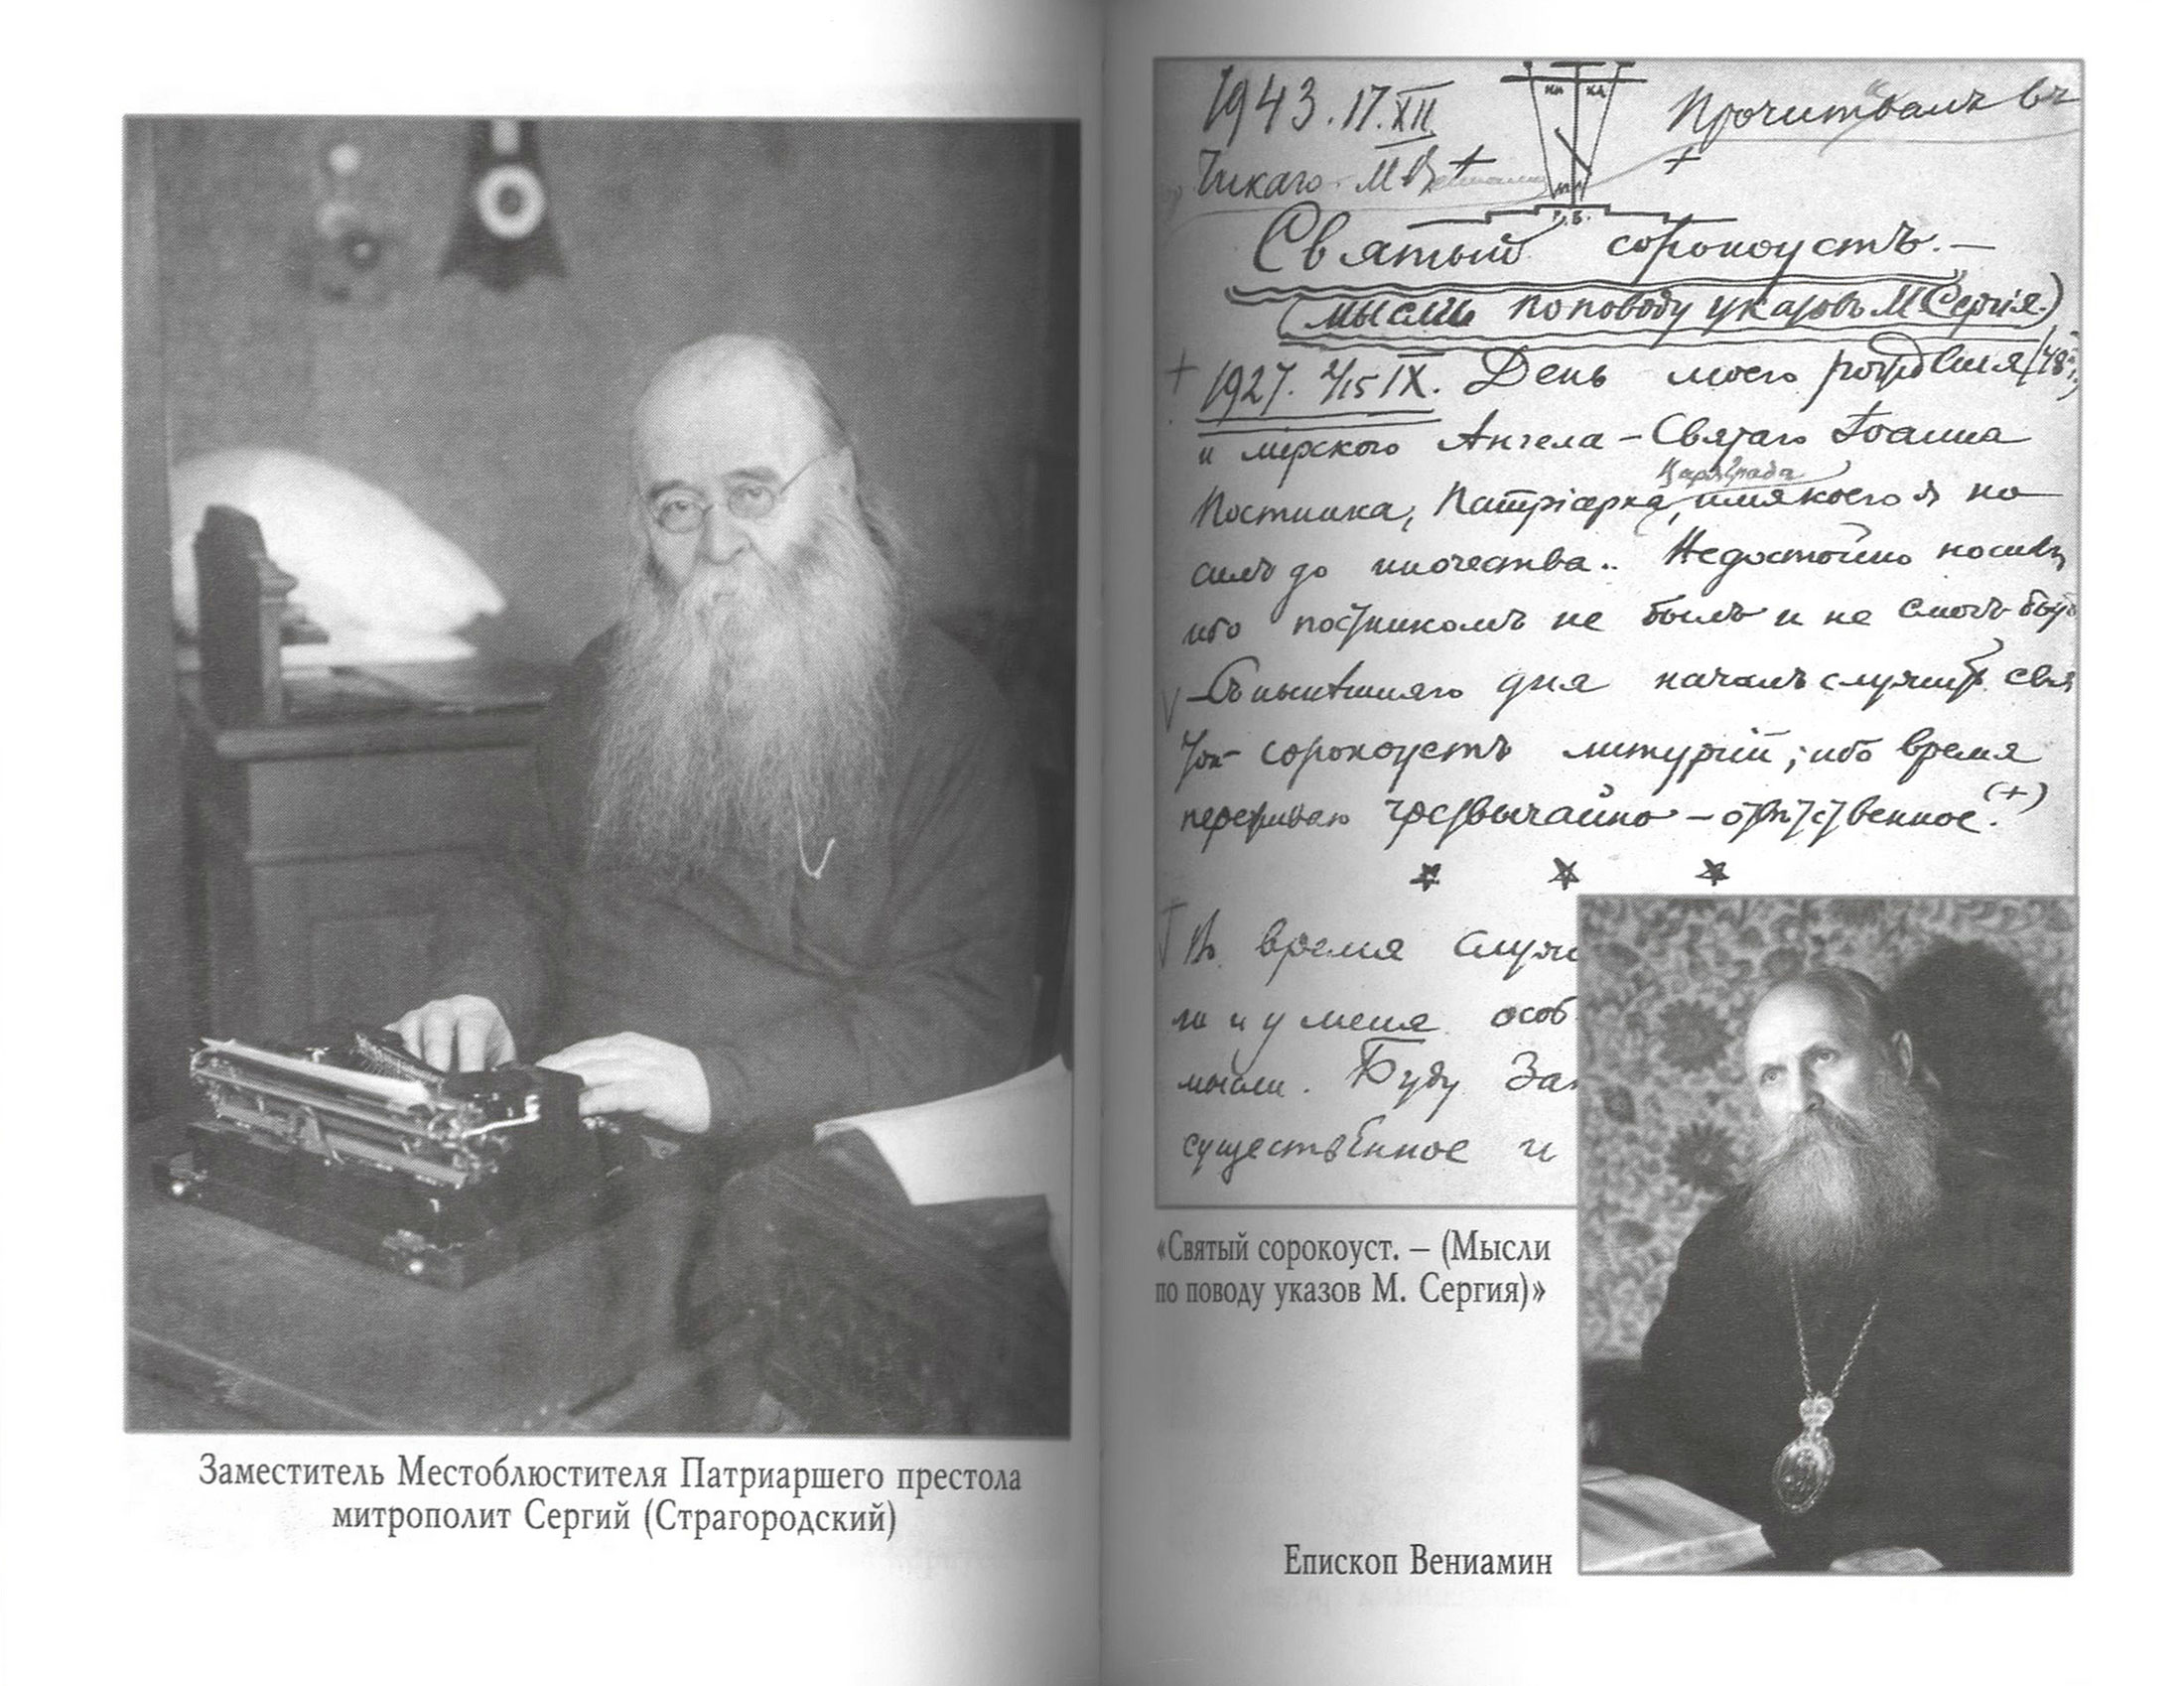 Заместитель Местоблюстителя Патриаршего престола
митрополит Сергий (Страгородский)
1943. 17. XII
Прочитвалъ въ
Чикаго. М В
Святый сорокоустъ. —
(мысли по поводу указовъ М Сергія.)
1927. 2/15 IX. День моего рожденія (48
и мірского Ангела – Святаго Іоанна
Цареграда
Постника, Патріарха, имя коего я но
силъ до иночества.. Недостойно носивъ,
ибо постникомъ не былъ и не смогъ быть
– Съ нынѣшняго дня началъ служить свя
той сорокоустъ литургій; ибо время
переживаю чрезвычайно – отвѣтственное. (+)
Въ время служ
ли и у меня особ
мысли. Буду Зап
существенное и
«Святый сорокоуст. – (Мысли
по поводу указов М. Сергия)»
Епископ Вениамин